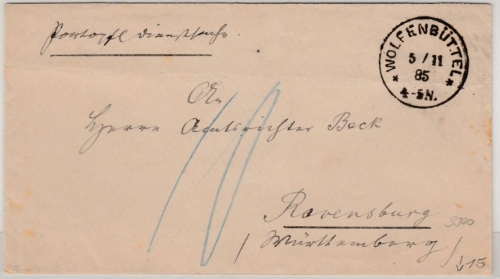 Portopfl Dienstsache.
* WOLFENBÜTTEL *
5 / 11
85
4-5N.
An
Herrn Amtsrichter Beck
10
Ravensburg
Württemberg